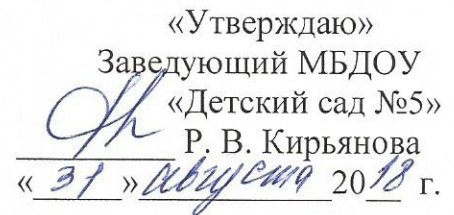 «Утверждаю»
Заведующий МБДОУ
«Детский сад №5»
Р. В. Кирьянова
«31» августа 2018 г.